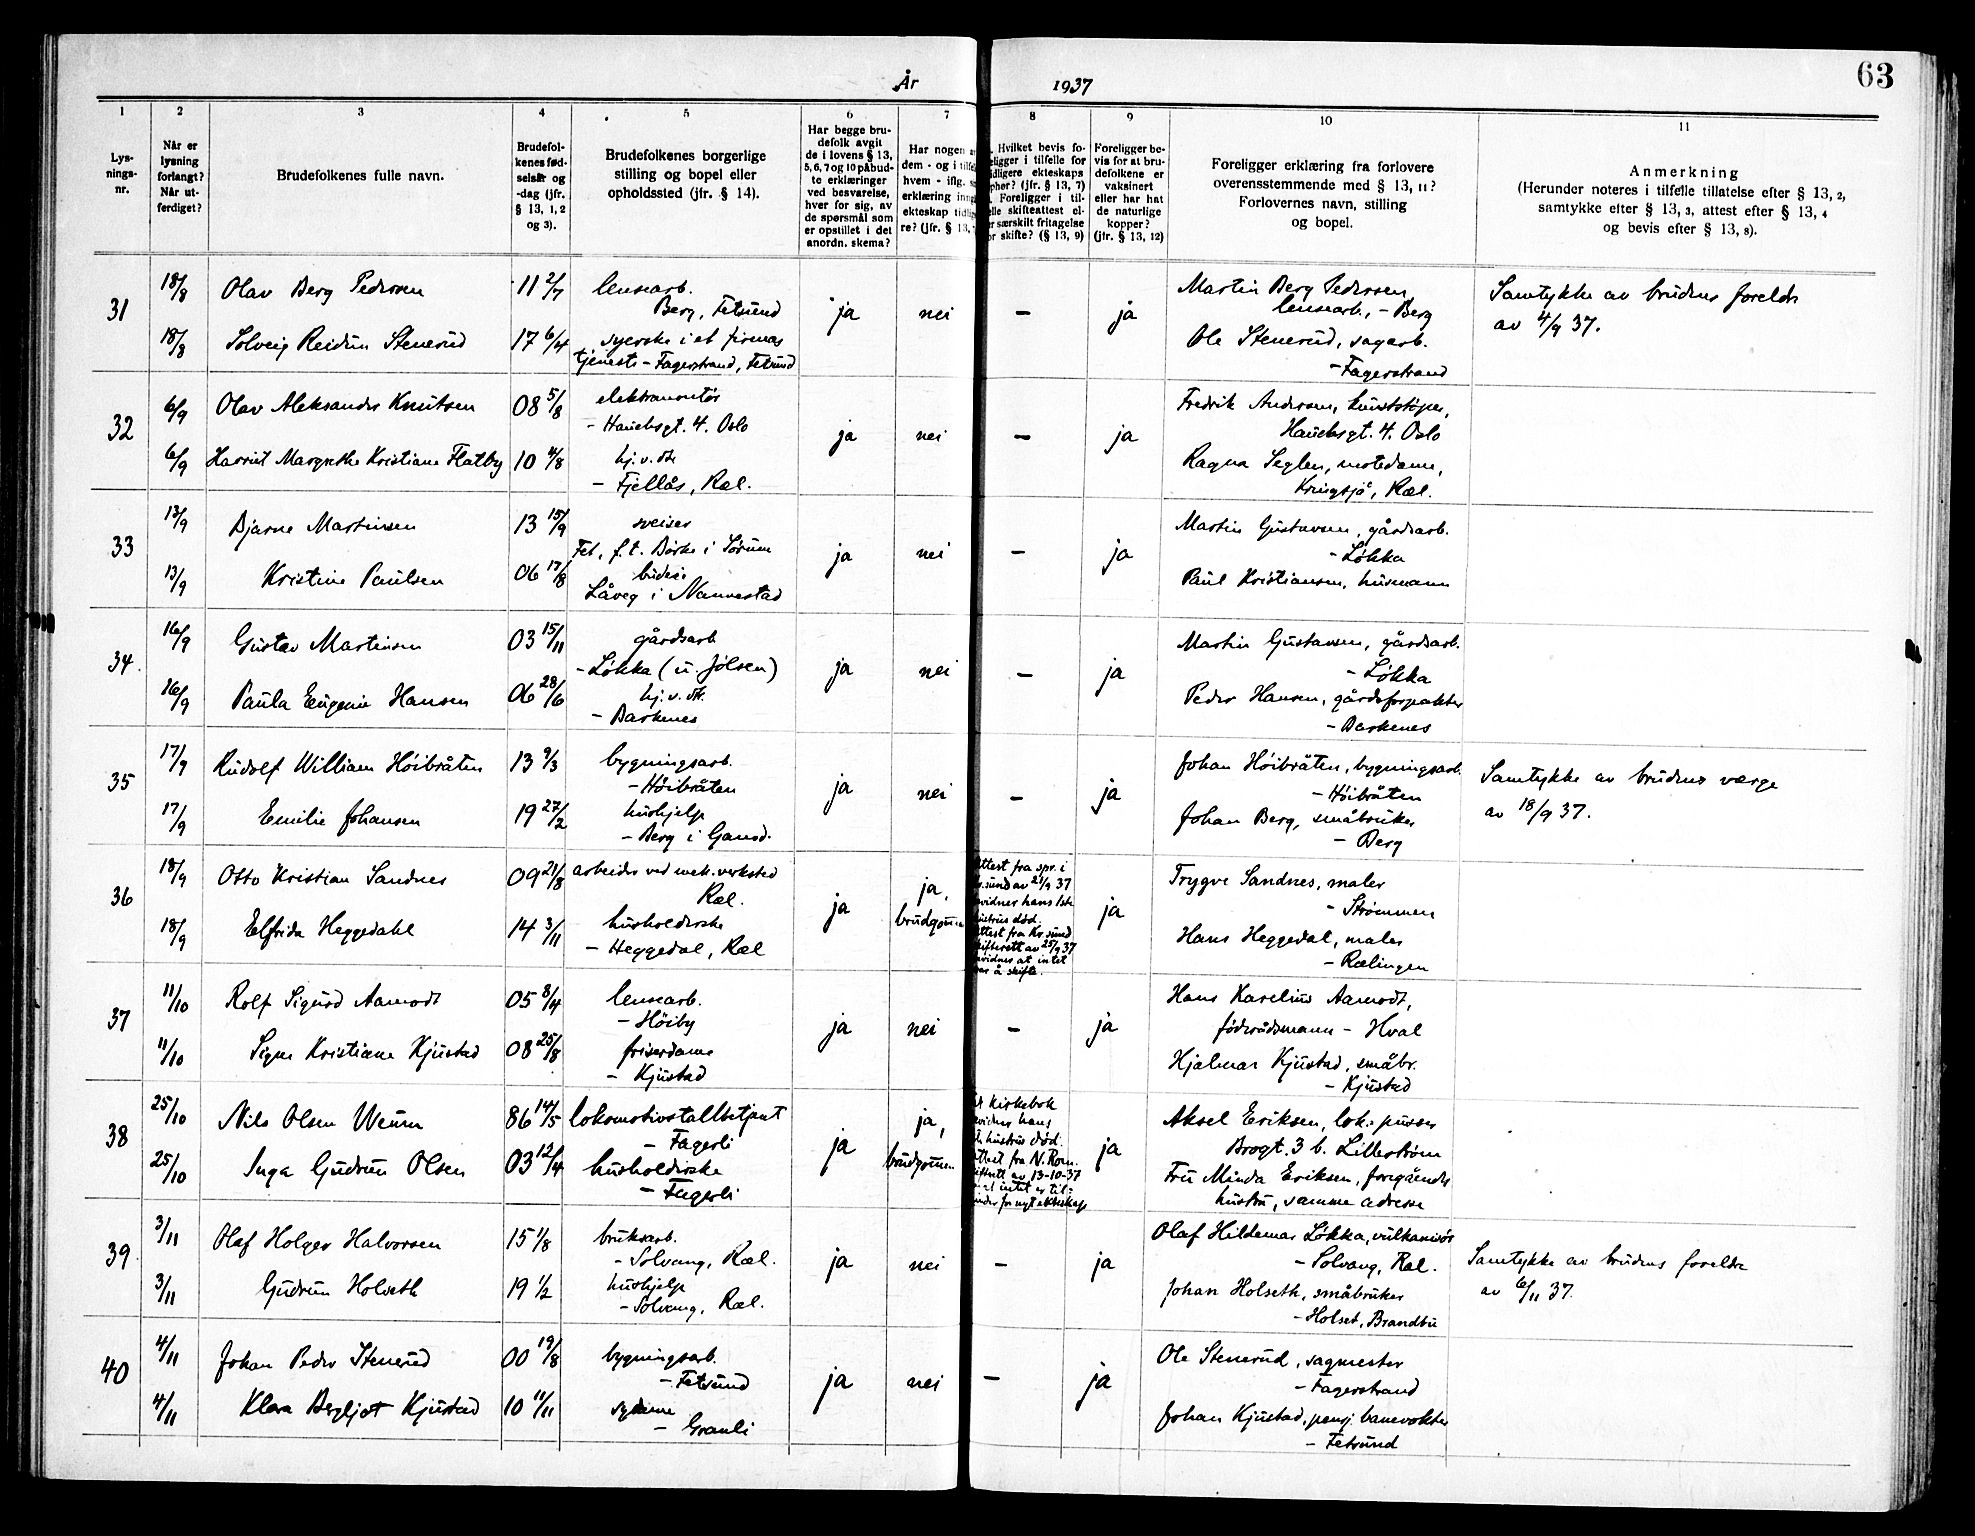 63
År 1937
1 2 3 4 5 6 7 8 9 10 11
Lys-
nings-
nr.
Når er
lysning
forlangt?
Når ut-
ferdiget?
Brudefolkenes fulle navn.
Brudefol-
kenes fød-
selsår og
-dag (jfr.
§ 13, 1, 2
og 3).
Brudefolkenes borgerlige
stilling og bopel eller
opholdssted (jfr. § 14).
Har begge bru-
defolk avgit
de i lovens § 13,
5, 6, 7 og 10 påbud-
te erklæringer
ved besvarelse,
hver for sig, av
de spørsmål som
er opstillet i det
anordn. skema?
Har nogen a
dem - og i tilfe
hvem - iflg. s
erklæring inng
ekteskap tidlig
re? (jfr. § 13,
. Hvilket bevis fo-
eligger i tilfelle for
dligere ekteskaps
phør? (jfr. § 13, 7)
. Foreligger i til-
elle skifteattest el-
r særskilt fritagelse
or skifte? (§ 13, 9)
Foreligger be-
vis for at bru-
defolkene er
vaksinert
eller har hat
de naturlige
kopper?
(jfr. § 13, 12)
Foreligger erklæring fra forlovere
overensstemmende med § 13, 11?
Forlovernes navn, stilling
og bopel.
Anmerkning
(Herunder noteres i tilfelle tillatelse efter § 13, 2,
samtykke efter § 13, 3, attest efter § 13, 4
og bevis efter § 13, 8).
31
18/8 Olav Berg Pedersen 11 2/7 lensearb.
Berg, Fetsund
18/8 Solveig Reidun Stenerud 17 6/4 syerske i et firmas
tjeneste - Fagerstrand, Fetsund
ja nei - ja
Martin Berg Pedersen
lensearb, - Berg
Ole Stenerud, sagarb.
- Fagerstrand
Samtykke av brudens foreldre
av 4/9 37.
32
6/9 Olav Aleksander Knutsen 08 5/8 elektromontør
- Hauchsgt. 4. Oslo
6/9 Harriet Margrethe Kristiane Flatby 10 4/8 hj. v. do
- Fjellås, Ræl.
ja nei - ja
Fredrik Andersen, kunststøper,
Hauchsgt. 4. Oslo
Ragna Seglen, motedame,
Kringsjå, Ræl.
33
13/9 Bjarne Martinsen 13 15/9 sveiser
Fet, f.t. Børke i Sørum
13/9 Kristine Paulsen 06 17/8 budeie
Låveg i Nannestad
ja nei - ja
Martin Gustavsen, gårdsarb.
- Løkka
Paul Kristiansen, husmann
34.
16/9 Gustav Martinsen 03 15/11 gårdsarb
- Løkka (u. Jølsen)
16/9 Paula Eugenie Hansen 06 28/6 hj. v. do.
- Barkenes
ja nei - ja
Martin Gustavsen, gårdsarb.
- Løkka
Peder Hansen, gårdsforpakter
- Barkenes
35
17/9 Rudolf William Höibråten 13 9/3 bygningsarb.
- Höibråten
17/9 Emilie Johansen 19 27/2 hushjelp
- Berg i Gansd.
ja nei - ja
Johan Höibråten, bygningsarb.
- Höibråten
Johan Berg, småbruker
- Berg
Samtykke av brudens verge
av 18/9 37.
36
18/9 Otto Kristian Sandnes 09 21/8 arbeider ved mek. verksted
Ræl.
18/9 Elfrida Heggedahl 14 3/11 husholderske
- Heggedal, Ræl
ja ja,
brudgommen
ttest fra spr. i
r.sund av 21/9 37
vidner hans 1ste
ustrus død.
ttest fra Kr.sund
kifterett av 25/9 37
vidner at intet
var å skifte.
ja
Trygve Sandnes, maler
- Strømmen
Hans Heggedal, maler
- Rælingen
37
11/10 Rolf Sigurd Aamodt 05 8/4 lensearb.
- Höiby
11/10 Signe Kristiane Kjustad 08 25/8 friserdame
- Kjustad
ja nei - ja
Hans Karelius Aamodt,
föderådsmann - Hval
Hjalmar Kjustad, småbr.
- Kjustad
38
25/10 Nils Olsen Weum 86 14/5 lokomotivstallbetjent
- Fagerli
25/10 Inga Gudrun Olsen 03 12/4 husholderske
- Fagerli
ja ja,
brudgommen
kirkebok
vidner hans
hustrus død.
ttest fra N. Rom.
iftrett av 13-10-37
at intet er til
inder for nytt ekteskap
ja
Aksel Eriksen, lok. pusser
Brogt. 3 b. Lillestrøm
Fru Minda Eriksen, foregåendes
hustru, samme adresse
39
3/11 Olaf Holger Halvorsen 15 1/8 bruksarb.
- Solvang, Ræl.
3/11 Gudrun Holseth 19 1/2 hushjelp
- Solvang, Ræl.
ja nei - ja
Olaf Hildemar Løkka, vulkanisør
- Solvang, Ræl.
Johan Holseth, småbruker
- Holset, Brandbu
Samtykke av brudens foreldre
av 6/11 37.
40
4/11 Johan Peder Stenerud 00 19/8 bygningsarb.
- Fetsund
4/11 Klara Bergljot Kjustad 10 11/11 sydame
- Granli
ja nei - ja
Ole Stenerud, sagmester
- Fagerstrand
Johan Kjustad, pensj. banevokter
- Fetsund